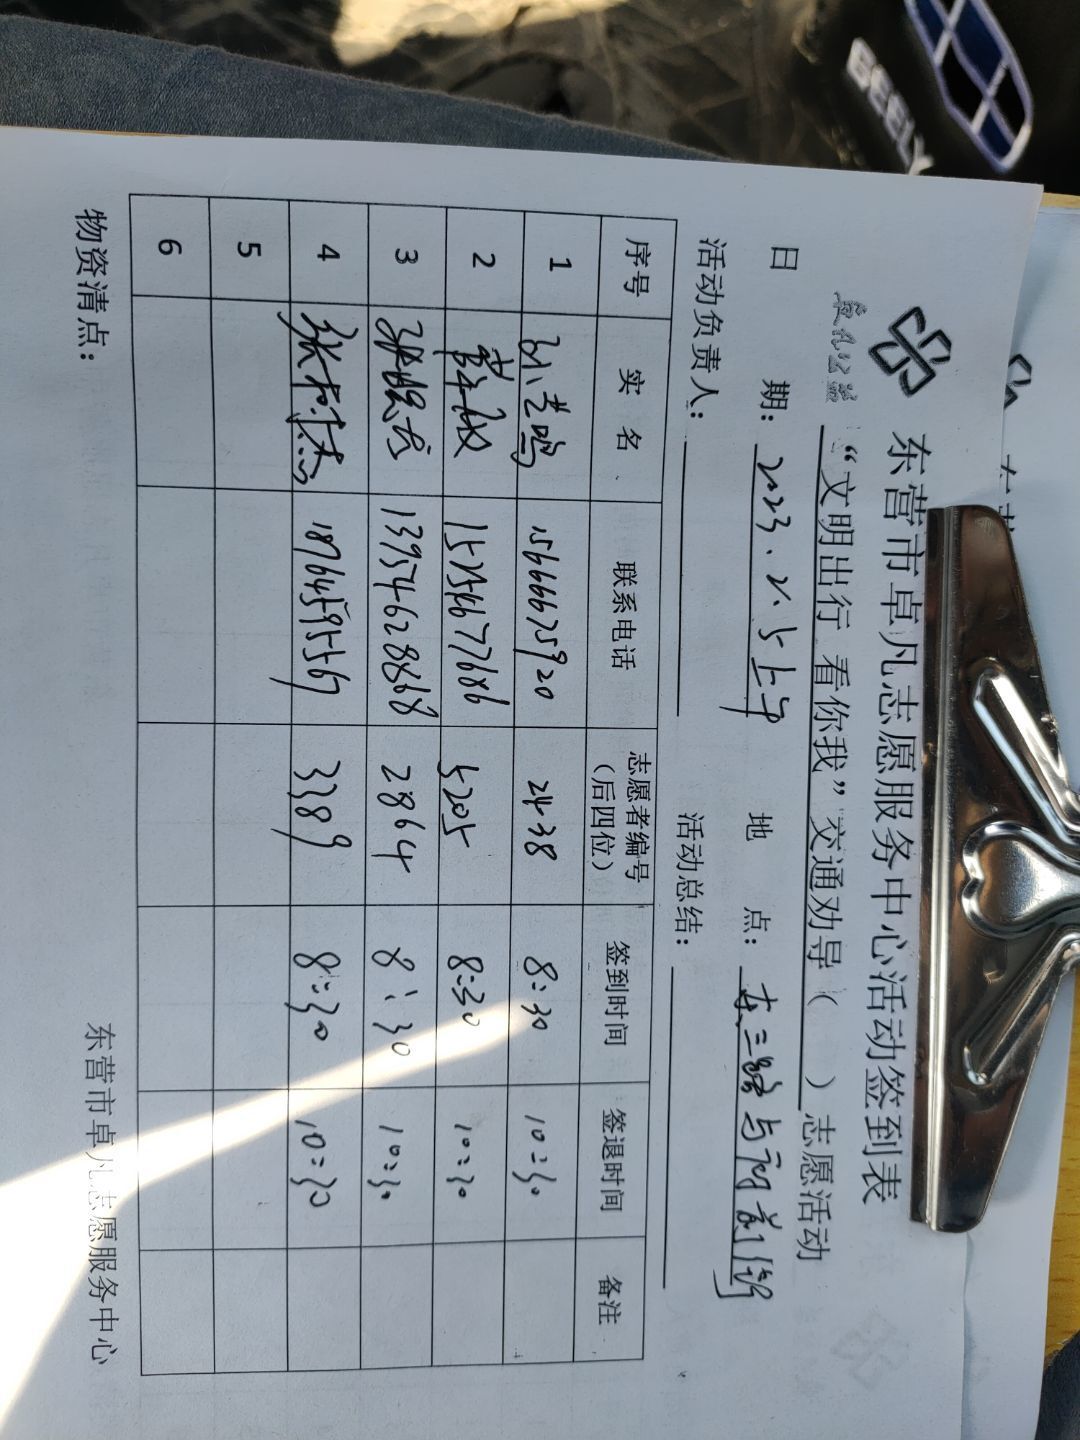 GEELY
东营市卓凡志愿服务中心活动签到表
卓凡公益
“文明出行 看你我”交通劝导（ ）志愿活动
日 期：2023.2.5上午 地 点：东三路与府前街
活动负责人： 活动总结：
序号 实 名 联系电话 志愿者编号（后四位） 签到时间 签退时间 备注
1 15666675920 2438 8:30 10:30
2 15254677686 5205 8:30 10:30
3 13954628868 2864 8:30 10:30
4 18764595569 3389 8:30 10:30
5
6
物资清点： 东营市卓凡志愿服务中心